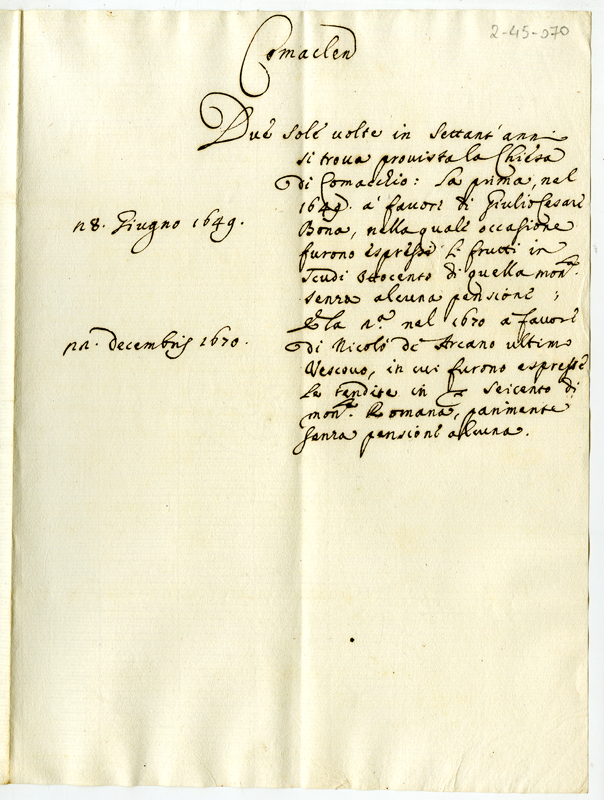 2-45-070
Comaclen
Due sole volte in Settant'anni
si trova provista la Chiesa
di Comacchio: La prima, nel
1649. a favore di Giulio Cesare
28. Giugno 1649.
Bona, nella quale occasione
furono espressi li frutti in
scudi ottocento di quella mon.ta
senza alcuna pensione;
E la 2.a nel 1670 a favore
22. decembris 1670.
di Nicolò de Arcano ultimo
Vescovo, in cui furono espresse
le rendite in seicento di
mon.ta Romana, parimente
senza pensione alcuna.